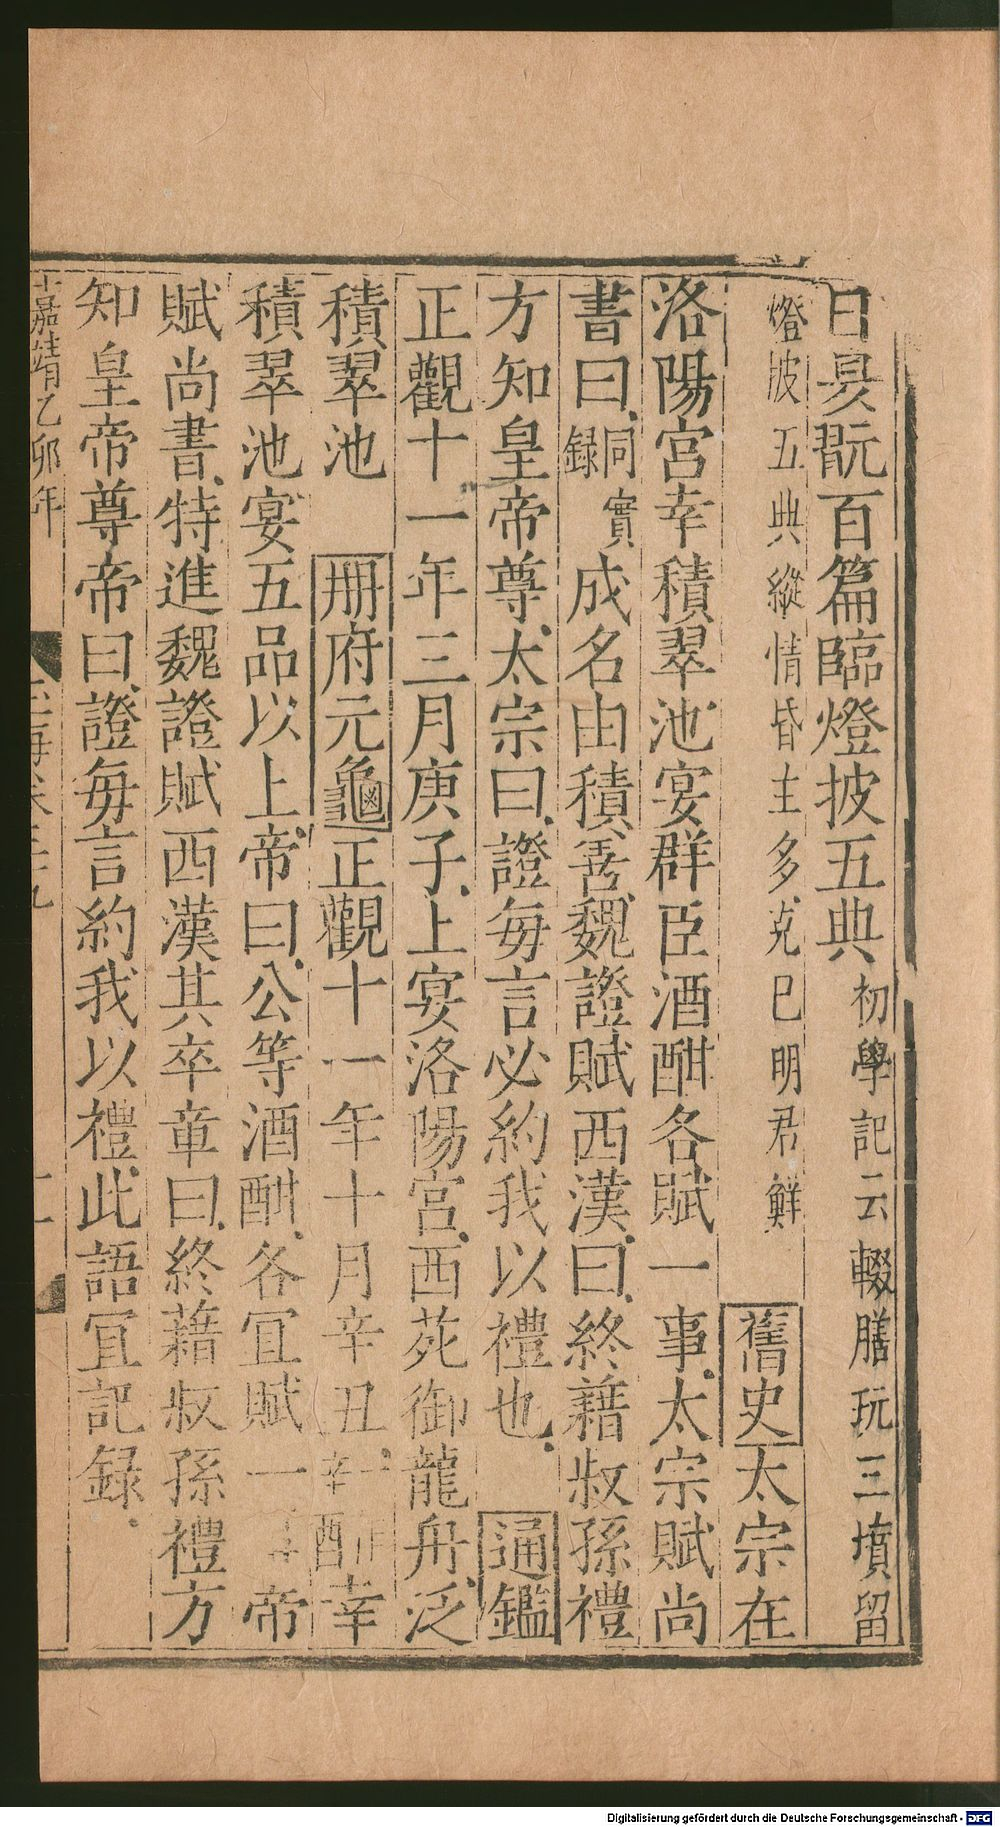 日昃翫百篇臨燈披五典初學記云輟膳玩三墳留
燈披五典縱情昏主多克巳明君鮮 舊史太宗在
洛陽宮幸積翠池宴群臣酒酣各賦一事太宗賦尚
書曰同實錄成名由積善魏證賦西漢曰終藉叔孫禮
方知皇帝尊太宗曰證每言必約我以禮也 通鑑
正觀十一年三月庚子上宴洛陽宮西苑御龍舟泛
積翠池 冊府元龜正觀十一年十月辛丑一辛酉幸
積翠池宴五品以上帝曰公等酒酣各冝賦一事帝
賦尚書特進魏證賦西漢其卒章曰終藉叔孫禮方
知皇帝尊帝曰證每言約我以禮此語冝記録
嘉靖乙卯年